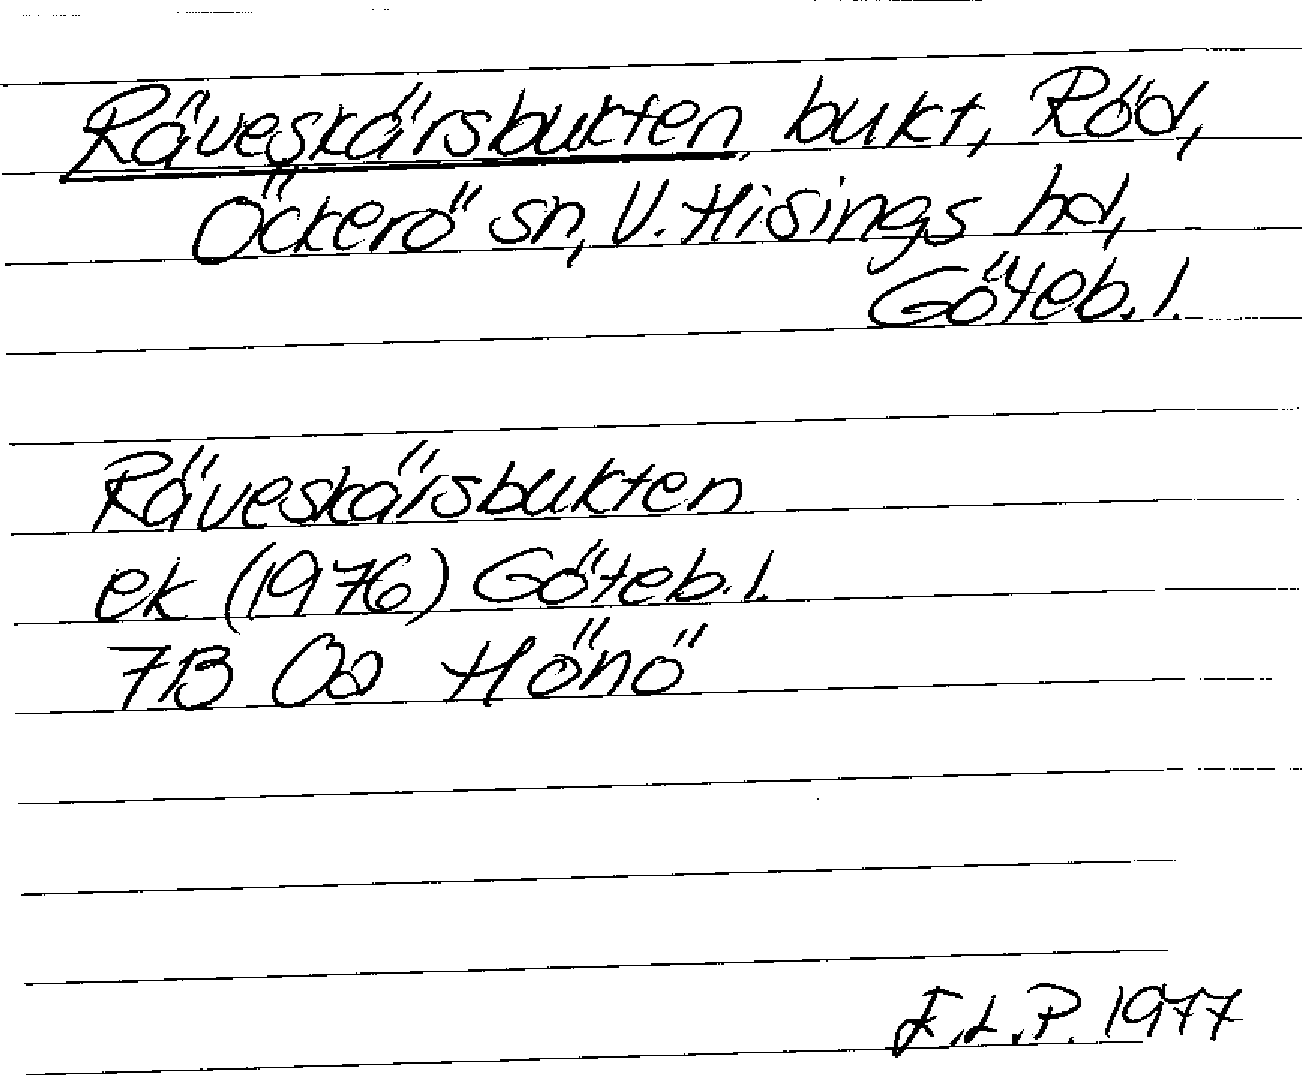 Räveskärsbukten, bukt, Röd,
Öckerö sn, V. Hisings hd,
Göteb. l.
Räveskärsbukten
ek (1976) Göteb. l.
7B 0a Hönö
E.L.P. 1977